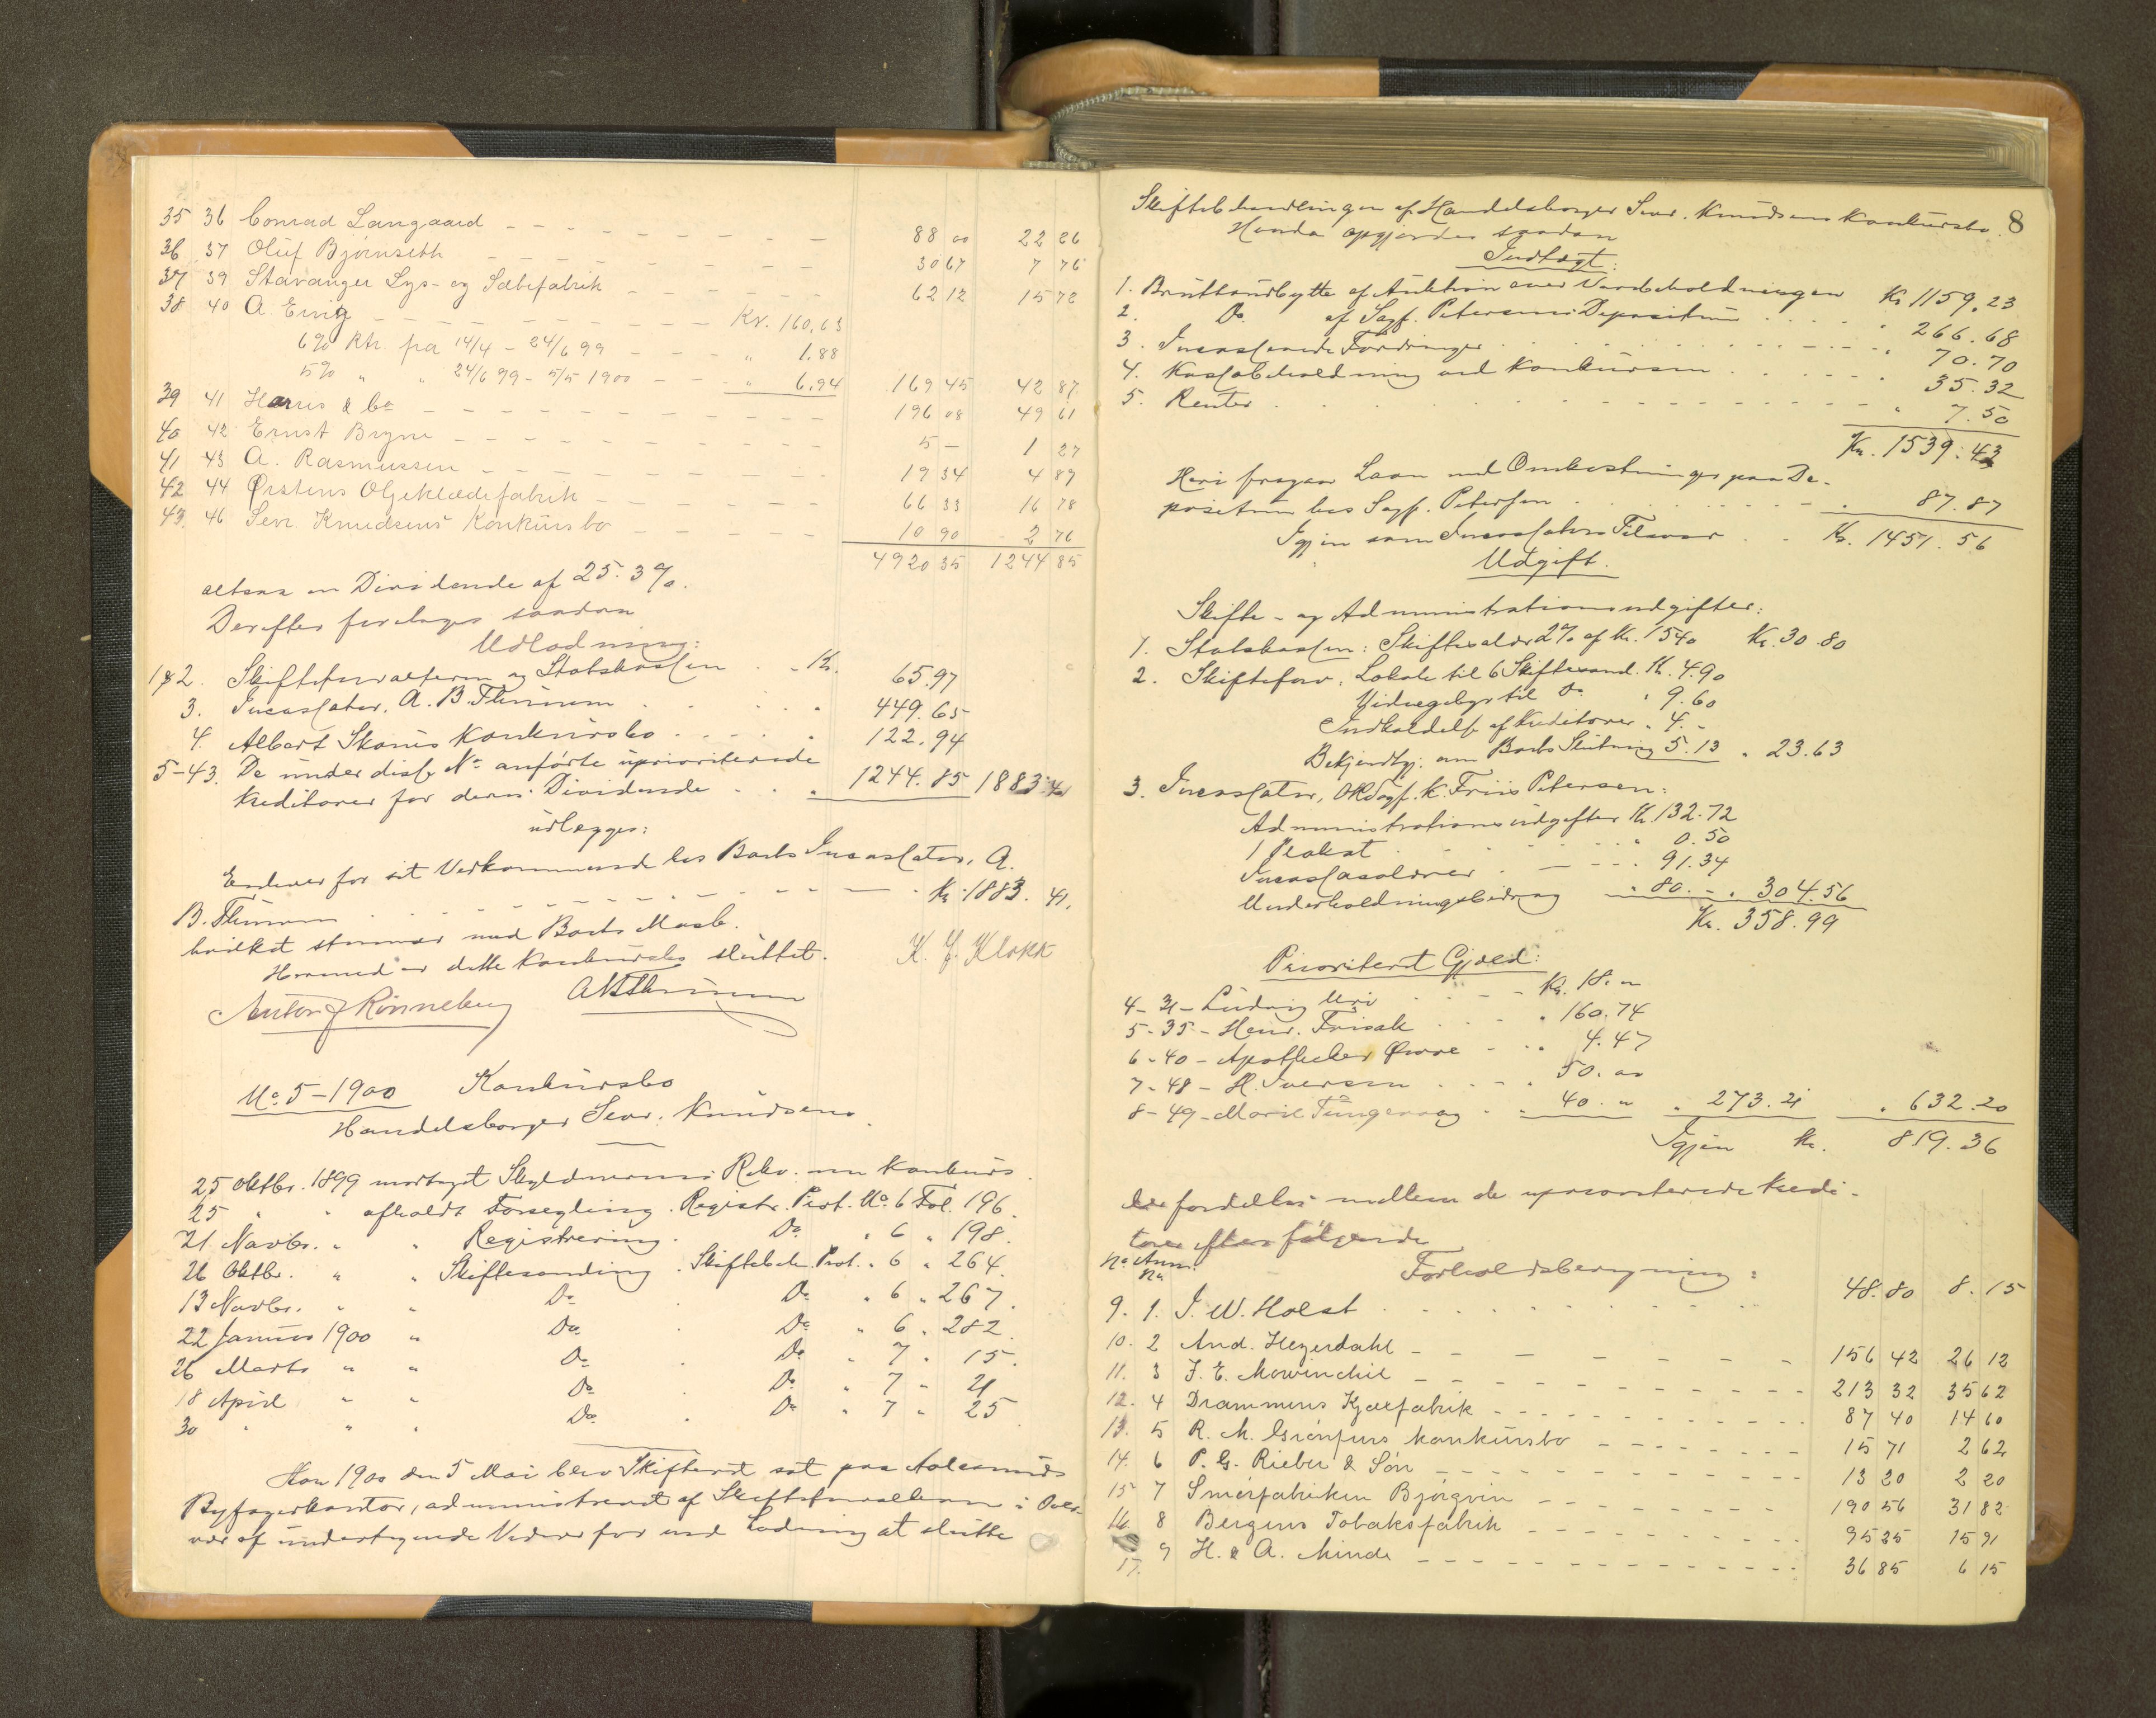 35 36 Conrad Langaard - - - - 88 00 22 26
36 37 Oluf Bjørnseth - - - - 30 67 7 76
37 39 Stavanger Lys- og Sæbefabrik - - - 62 12 15 72
38 40 A. Evig - - - - Kr. 160,63
6% Rtr. fra 14/4 - 24/6 99 - - - " 1.88
5% " " 24/6 99 - 5/5 1900 - - - " 6,94 169 45 42 87
39 41 Harris & Co - - - - 196 08 49 61
40 42 Ernst Bryne - - - - 5 - 1 27
41 43 A. Rasmussen - - - - 19 34 4 89
42 44 Ørstens Oljeklædefabrik - - - 66 33 16 78
43. 46 Sevr. Knudsens Konkursbo - - - 10 90 2 76
4920 35 1244 85
altsaa en Dividende af 25.3%.
Derefter foretages saadan
Udlodning:
1&2. Skifteforvalteren og Statskassen . - Kr. 65.97
3. Incassator, A. B. Thinnem . . . 449.65
4. Albert Skones Konkursbo . . . 122.94
5-43. De under disse No anførte uprioriterede
Kreditorer for deres Dividende . . . 1244.85 1883.41
udlægges:
Enhver for sit Vedkommende hos Boets Incassator, A.
B. Thinnem . . . . Kr. 1883.41.
hvilket stemmer med Boets Masse.
Hermed er dette Konkursbo sluttet.
K. J. Klokk
Anton J Rønneberg ABThinnem
No 5-1900 Konkursbo
Handelsborger Sevr. Knudsens.
25 Oktbr. 1899 modtaget Skyldnerens Rekv. om Konkurs.
25 " " afholdt Forsegling. Registr. Prot. No 6 Fol. 196.
21 Novbr. " " Registrering. Do " 6 " 198.
26 Oktbr. " " Skiftesamling. Skiftebeh. Prot. " 6 " 264.
13 Novbr. " " Do . Do " 6 " 267.
22 Januar 1900 " Do . Do " 6 " 282.
26 Marts " " Do . Do " 7 " 15.
18 April " " Do . Do " 7 " 21
30 " " " Do . Do " 7 " 25.
Aar 1900 den 5 Mai blev Skifteret sat paa Aalesunds
Byfogedkontor, administreret af Skifteforvalteren i Over-
vær af undertegnede Vidner for ved Lodning at slutte
8
Skiftebehandlingen af Handelsborger Sevr. Knudsens Konkursbo.
Hvorda opgjordes saadan
Indtægt:
1. Bruttoudbytte af Auktion over Varebeholdningen Kr 1159.23
2. Do. af Sagf. Petersens Depositum . . . " 266.68
3. Incasserede Fordringer . . . " 70.70
4. Kassabeholdning ved Konkursen . . . " 35.32
5. Renter . . . " 7.50
Kr. 1539.43
Heri fragaar Laan med Omkostninger paa De-
positum hos Sagf. Petersen . . . " 87.87
Igjen som Incassators Tilsvar . . Kr. 1451.56
Udgift.
Skifte- og Administrationsudgifter:
1. Statskassen: Skiftesalær 2% af Kr. 1540 Kr. 30.80
2. Skifteforv. Lokale til 6 Skiftesaml. Kr. 4.90
Vidnegebyr til do " 9.60
Indkaldelse af Kreditorer " 4.-
Bekjendtgj. om Boets Slutning 5.13 " 23.63
3. Incassator, ORSagf. K. Friis Petersen:
Administrationsudgifter Kr. 132.72
1 Plakat . . . " 0.50
Incassasalærer . - - - " 91.34
Underholdningsbidrag " 80.- " 304.56
Kr. 358.99
Prioriteret Gjæld:
4-31- Ludvig Uri . . - Kr. 18."
5-35- Henr. Frisak . . " 160.74
6-40- Apotheker Øwre - . " 4.47
7-48- H. Iversen . . - " 50.00
8-49- Marie Tungevaag . " 40." " 273.21 " 632.20
Igjen Kr. 819.36
der fordeles mellem de uprioriterede Kredi-
torer efter følgende
No Anm. No Forholdsberegning:
9. 1. J. W. Holst . . . 48.80 8.15
10. 2 And. Heyerdahl - - - 156 42 26 12
11. 3 J. E. Mowinckel - - - 213 32 35 62
12. 4 Drammens Kjæxfabrik - - - 87 40 14 60
13. 5 R. M. Konkursbo - - - 15 71 2 62
14. 6 P. G. Rieber & Søn - - - 13 20 2 20
15 7 Smørfabriken Bjørgvin - - - 190 56 31 82
16 8 Bergens Tobaksfabrik - - - 95 25 15 91
17. 9 H. & A. Minde - - - 36 85 6 15